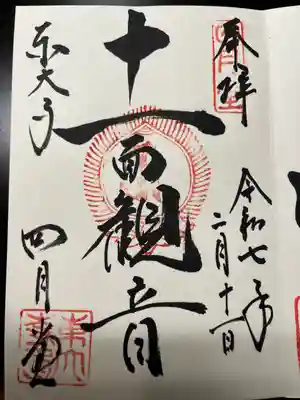 奉拝
令和七年
二月十一日
十一面観音
東大寺
四月堂